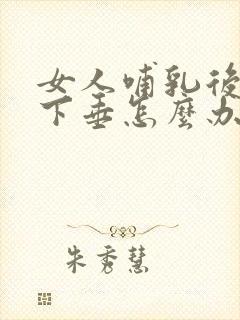 女人哺乳後
下垂怎麼办
朱秀慧